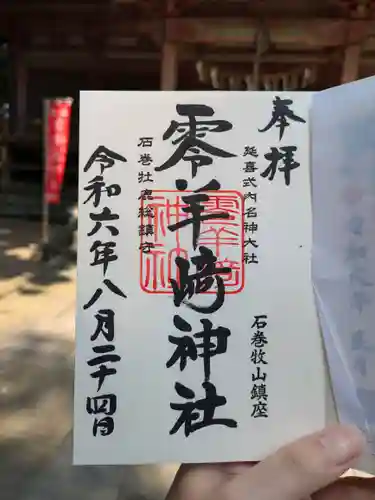 奉拝
延喜式内名神大社
石巻牧山鎮座
零羊崎神社
石巻牡鹿総鎮守
令和六年八月二十四日
零羊崎
神社